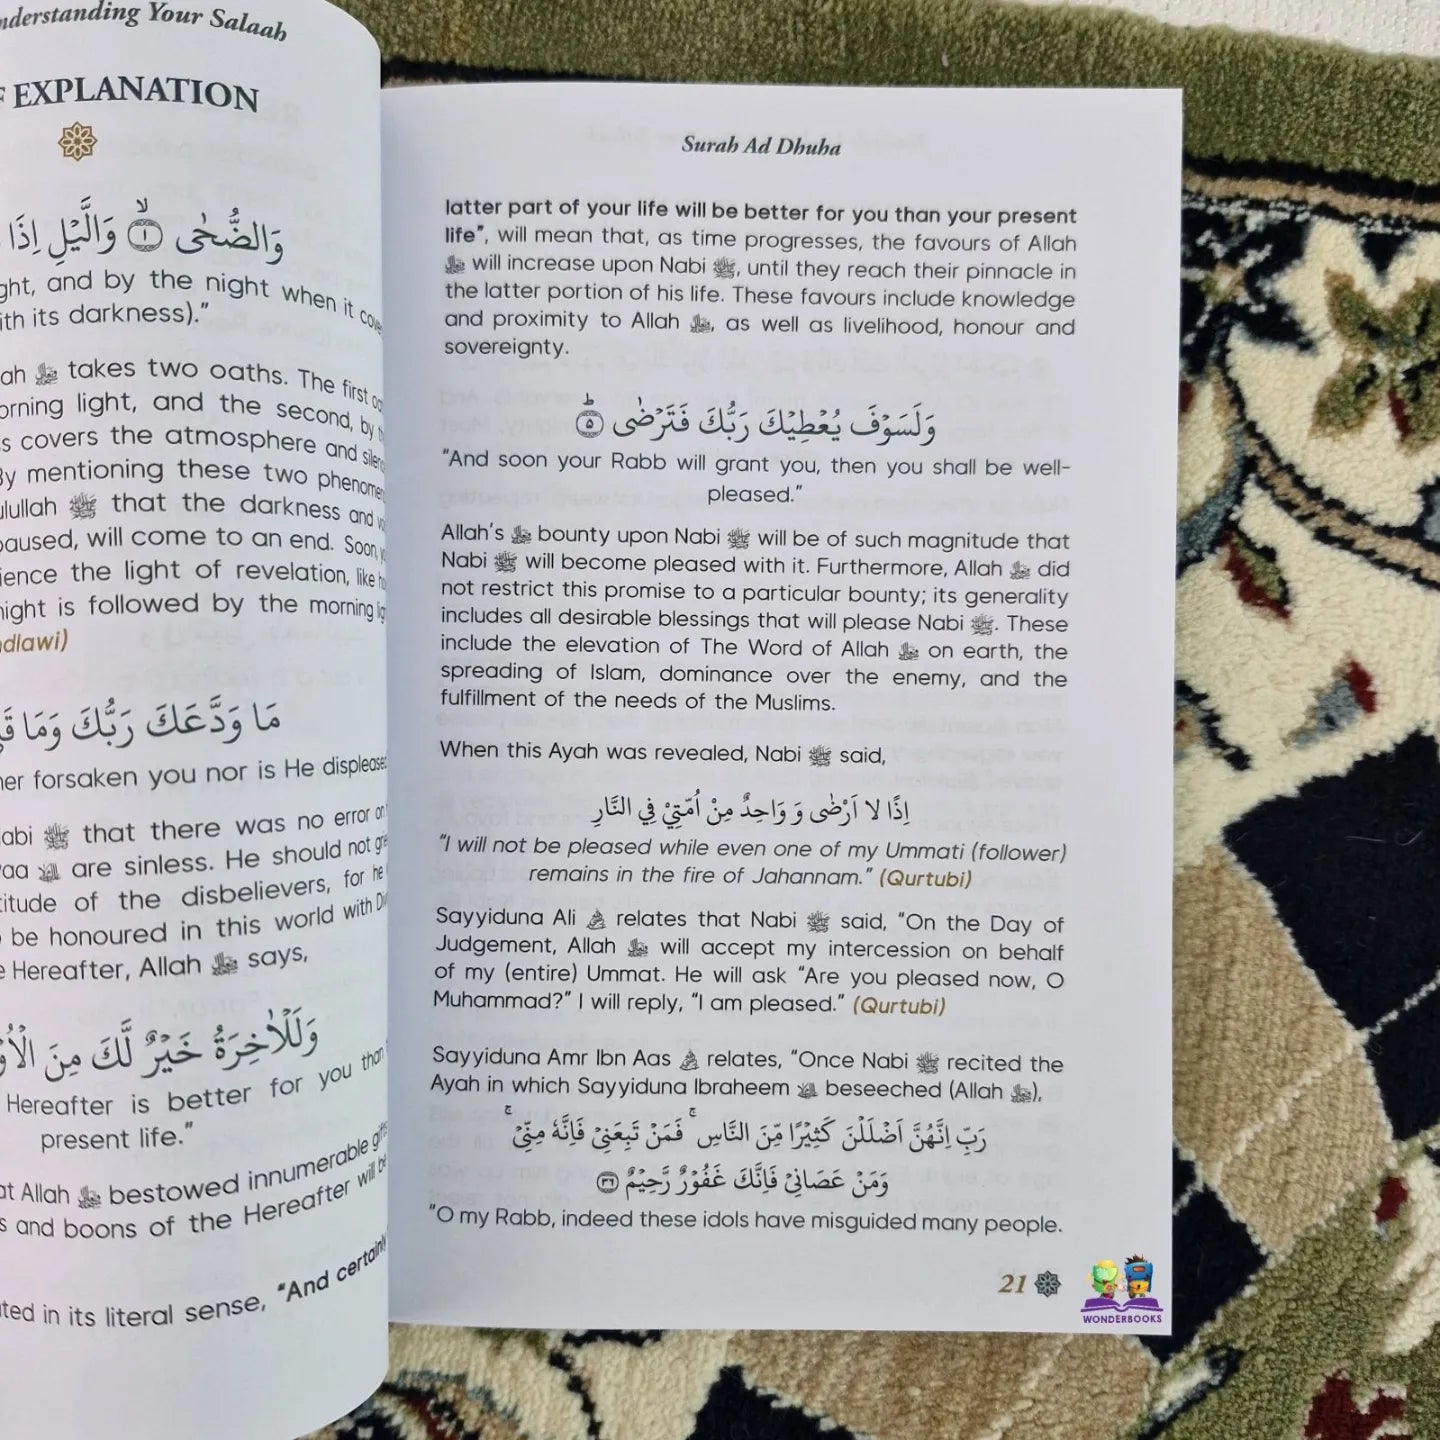 Understanding Your Salaah
EXPLANATION
وَالضُّحٰى ۙ﴿۱﴾ وَالَّيْلِ اِذَا
and by the night when it
with its darkness)."
takes two oaths. The first
light, and the second, by
covers the atmosphere and
By mentioning these two
ﷺ that the darkness and
will come to an end. Soon,
the light of revelation, like
night is followed by the morning
مَا وَدَّعَكَ رَبُّكَ وَمَا
forsaken you nor is He
Nabi ﷺ that there was no error
are sinless. He should not
of the disbelievers, for he
be honoured in this world with
Hereafter, Allah ﷻ says,
وَلَلْاٰخِرَةُ خَيْرٌ لَّكَ مِنَ
Hereafter is better for you than
present life."
Allah ﷻ bestowed innumerable
and boons of the Hereafter will be
in its literal sense, "And certainly
Surah Ad Dhuha
latter part of your life will be better for you than your present
life", will mean that, as time progresses, the favours of Allah
ﷻ will increase upon Nabi ﷺ, until they reach their pinnacle in
the latter portion of his life. These favours include knowledge
and proximity to Allah ﷻ, as well as livelihood, honour and
sovereignty.
وَلَسَوْفَ يُعْطِيْكَ رَبُّكَ فَتَرْضٰى ؕ﴿۵﴾
"And soon your Rabb will grant you, then you shall be well-
pleased."
Allah's ﷻ bounty upon Nabi ﷺ will be of such magnitude that
Nabi ﷺ will become pleased with it. Furthermore, Allah ﷻ did
not restrict this promise to a particular bounty; its generality
includes all desirable blessings that will please Nabi ﷺ. These
include the elevation of The Word of Allah ﷻ on earth, the
spreading of Islam, dominance over the enemy, and the
fulfillment of the needs of the Muslims.
When this Ayah was revealed, Nabi ﷺ said,
اِذًا لا اَرْضٰى وَ وَاحِدٌ مِنْ اُمَّتِيْ فِي النَّارِ
"I will not be pleased while even one of my Ummati (follower)
remains in the fire of Jahannam." (Qurtubi)
Sayyiduna Ali relates that Nabi ﷺ said, "On the Day of
Judgement, Allah ﷻ will accept my intercession on behalf
of my (entire) Ummat. He will ask "Are you pleased now, O
Muhammad?" I will reply, "I am pleased." (Qurtubi)
Sayyiduna Amr Ibn Aas relates, "Once Nabi ﷺ recited the
Ayah in which Sayyiduna Ibraheem beseeched (Allah ﷻ),
رَبِّ اِنَّهُنَّ اَضْلَلْنَ كَثِيْرًا مِّنَ النَّاسِ ۚ فَمَنْ تَبِعَنِيْ فَاِنَّهٗ مِنِّيْ ۚ
وَمَنْ عَصَانِيْ فَاِنَّكَ غَفُوْرٌ رَّحِيْمٌ ﴿۳۶﴾
"O my Rabb, indeed these idols have misguided many people.
21
WONDERBOOKS